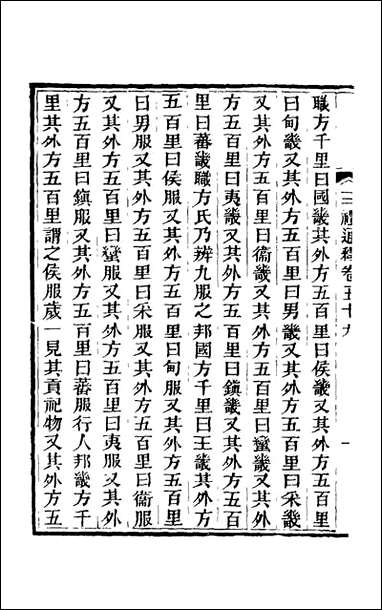 三禮通釋卷五十九 一
職方千里曰國畿其外方五百里曰侯畿又其外方五百里
曰甸畿又其外方五百里曰男畿又其外方五百里曰采畿
又其外方五百里曰衞畿又其外方五百里曰蠻畿又其外
方五百里曰夷畿又其外方五百里曰鎮畿又其外方五百
里曰蕃畿職方氏乃辨九服之邦國方千里曰王畿其外方
五百里曰侯服又其外方五百里曰甸服又其外方五百里
曰男服又其外方五百里曰采服又其外方五百里曰衞服
又其外方五百里曰蠻服又其外方五百里曰夷服又其外
方五百里曰鎮服又其外方五百里曰蕃服行人邦畿方千
里其外方五百里謂之侯服歲一見其貢祀物又其外方五